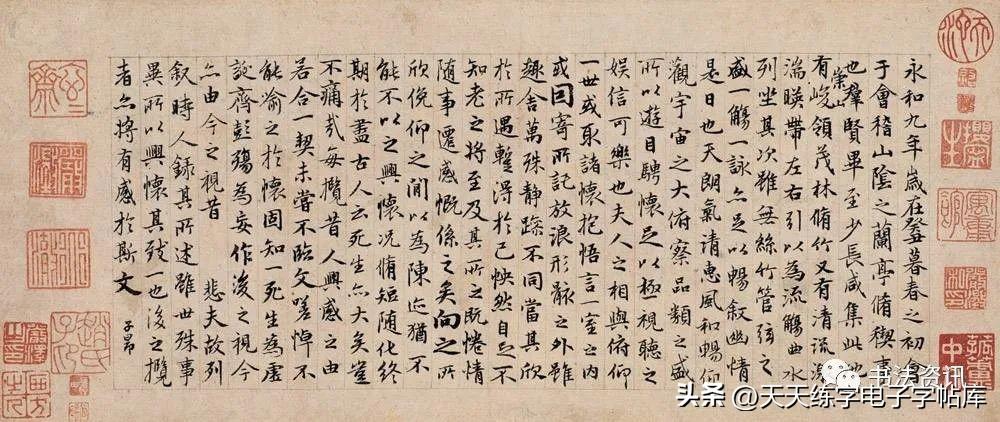 永和九年歲在癸丑暮春之初會
于會稽山陰之蘭亭脩稧事
也羣賢畢至少長咸集此地
有崇山峻領茂林脩竹又有清流激
湍暎帶左右引以為流觴曲水
列坐其次雖無絲竹管弦之
盛一觴一詠亦足以暢敘幽情
是日也天朗氣清惠風和暢仰
觀宇宙之大俯察品類之盛
所以遊目騁懷足以極視聽之
娛信可樂也夫人之相與俯仰
一世或取諸懷抱悟言一室之內
或因寄所託放浪形骸之外雖
趣舍萬殊靜躁不同當其欣
於所遇蹔得於己怏然自足不
知老之將至及其所之既惓情
隨事遷感慨係之矣向之所
欣俛仰之閒以為陳迹猶不
能不以之興懷況脩短隨化終
期於盡古人云死生亦大矣豈
不痛哉每攬昔人興感之由
若合一契未嘗不臨文嗟悼不
能喻之於懷固知一死生為虛
誕齊彭殤為妄作後之視今
亦由今之視昔 悲夫故列
敘時人錄其所述雖世殊事
異所以興懷其致一也後之攬
者亦將有感於斯文
子昂
书法资讯
头条 @天天练字电子字帖库